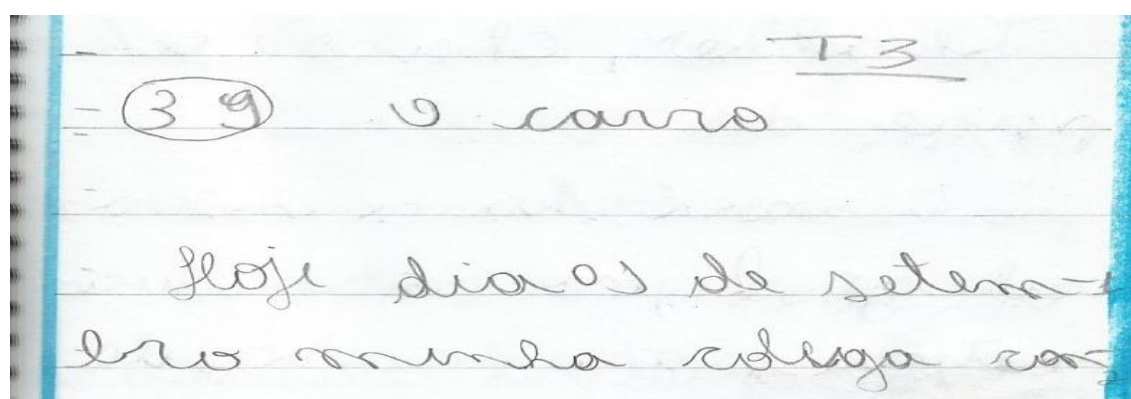 T3
39 O carro
Hoje dia 01 de setem-
bro minha colega con-